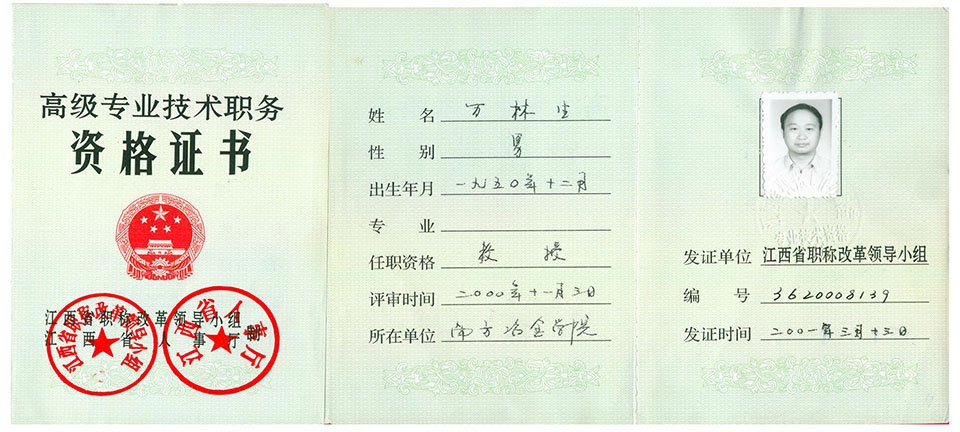 高级专业技术职务
资格证书
江西省职称改革领导小组
江西省人事厅 制
江西省职称改革领导小组
江西省人事厅
姓 名 万林生
性 别 男
出生年月 一九五〇年十二月
专 业
任职资格 教授
评审时间 二〇〇〇年十一月三日
所在单位 南方冶金学院
发证单位 江西省职称改革领导小组
编 号 3620008139
发证时间 二〇〇一年三月十三日